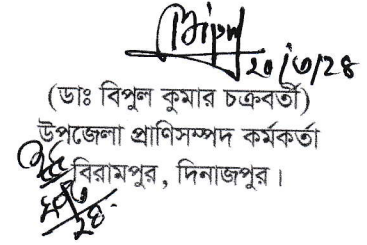 Bipul
২০/৩/২৪
(ডাঃ বিপুল কুমার চক্রবর্তী)
উপজেলা প্রাণিসম্পদ কর্মকর্তা
বিরামপুর, দিনাজপুর।